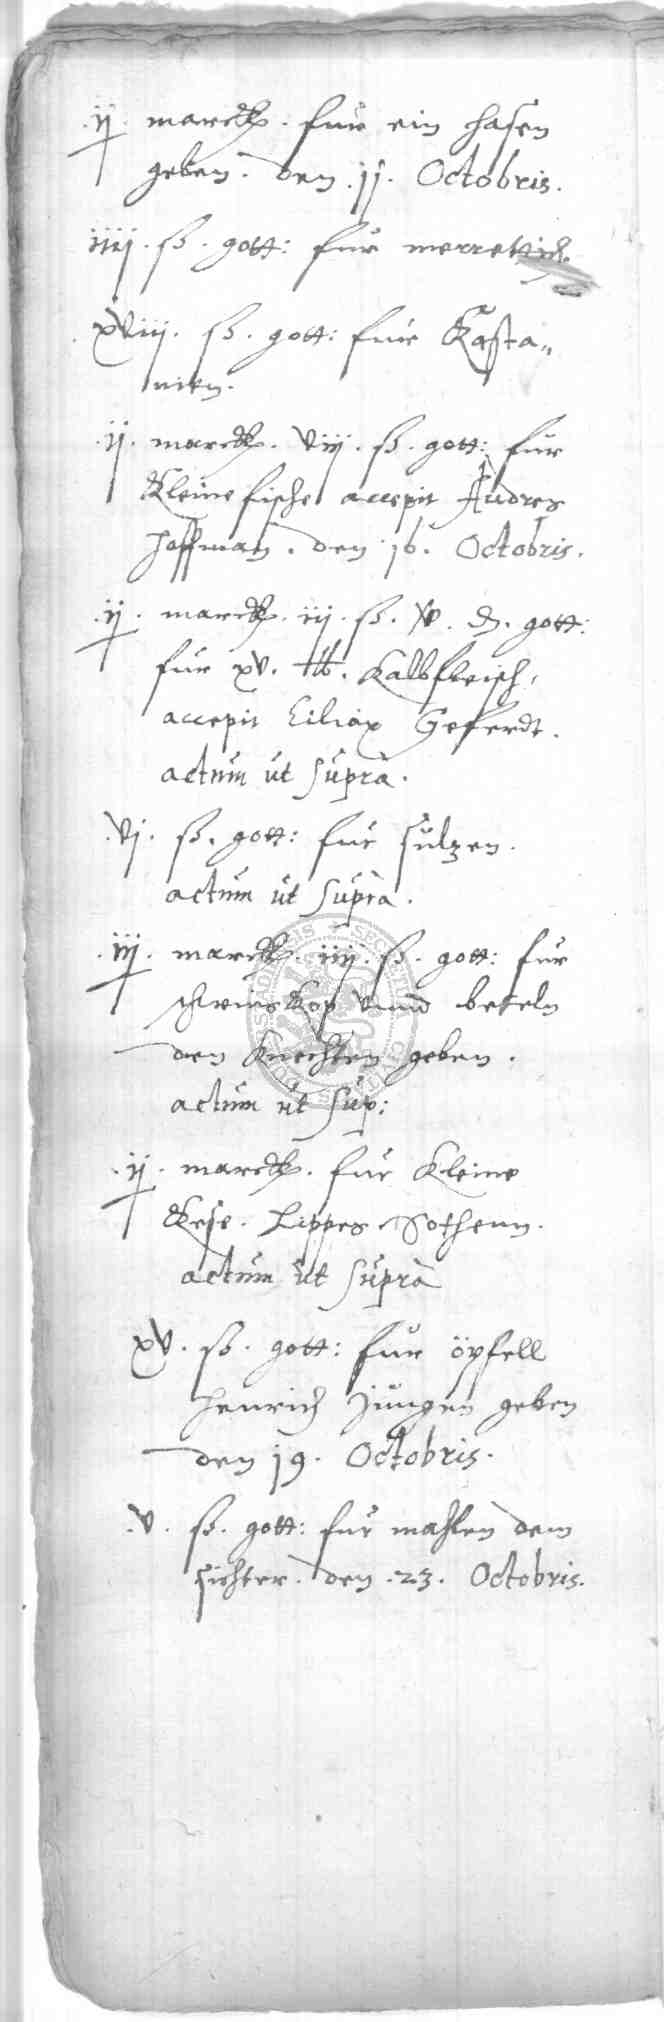 .ij. marck. fur ein hasen
geben. den .11. Octobris.
iiij. ß. gott: fur merrettich.
xviij. ß. gott: fur Kasta„
nien.
.ij. marck. viij. ß. gott: fur
Kleine fische accepit Andres
Hoffman. den 16. Octobris.
.ij. marck. iij. ß. v. d. gott:
fur xv. lb. Kalbfleisch,
accepit Ciliax Geferdt.
actum ut supra.
.vi. ß. gott: fur sultzen.
actum ut supra.
.iij. marck. iiij. ß. gott: fur
vnnd
den Knechten geben.
actum ut sup:
.ij. marck. fur Kleine
Kese. Lippes Sothenn.
actum ut supra
xv. ß. gott: fur öpfell
Henrich Jungen geben
den 19. Octobris.
.v. ß. gott: fur mahlen dem
sichter. den .23. Octobris.